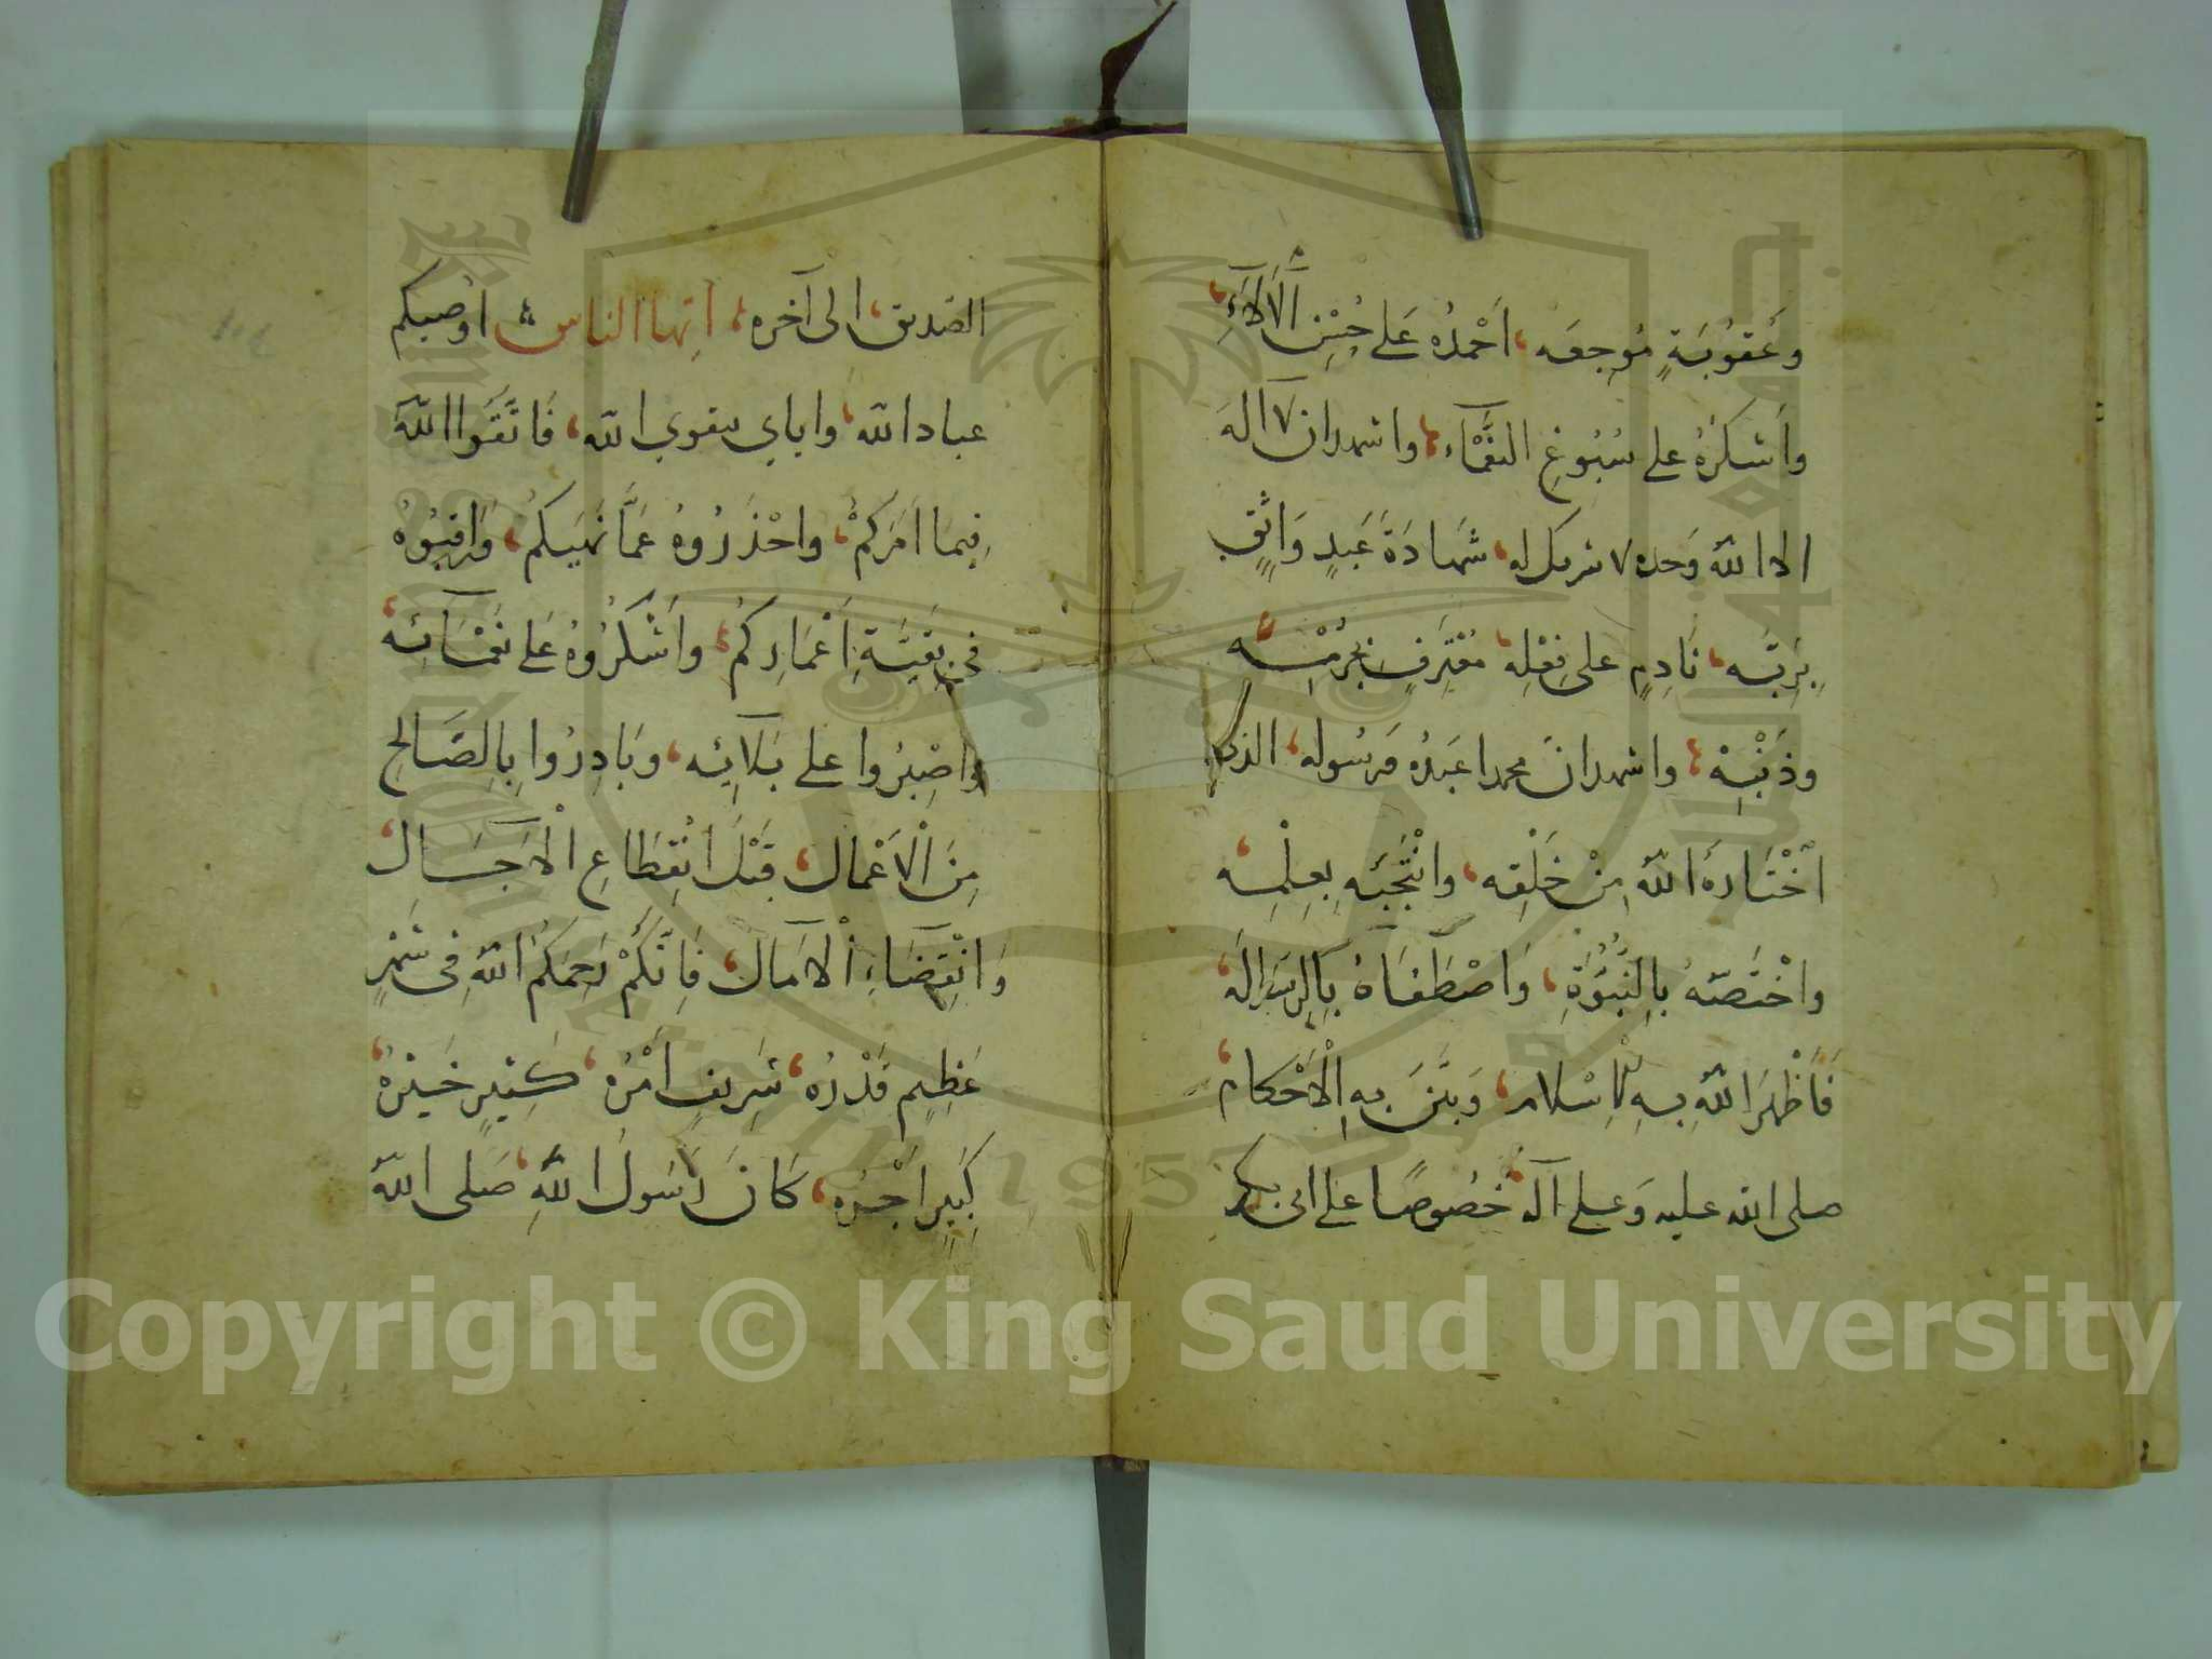 وَعُقُوبَةٍ مُوجِعَه، اَحْمَدُهُ عَلى حُسْنِ الْآلَاءِ،
وأَشكرُهُ على سُبُوغِ النَّعْمَاءِ، واشهد ان لا اله
الا الله وَحده لا شريك له، شَهادَةَ عَبدٍ وَاثِقٍ
بِرَبِّه، نَادِمٍ على فِعْلِه، مُعْتَرِفٍ بِجُرْمِه
وذَنْبِه، واشهد انَّ محمدا عَبدُه وَرسُوله، الذى
اخْتَارَهُ اللهُ مِنْ خَلْقِه، وانْتَجَبَه بِعِلمِه
واخْتَصَّهُ بِالنُّبُوَّةِ، وَاصْطَفَاهُ بِالرِسَالَه،
فَاَظْهَرَ اللهُ بِهِ الْاِسْلام، وَبَيَّنَ بِهِ الْاَحْكام،
صلى الله عليه وَعلى آله خُصُوصًا على ابى بكر
الصّديق، الى آخره، ايّها الناس اوُصيكم
عباد الله، واياى بتقوى الله، فَاتَّقُوا اللهَ
فِيمَا اَمَرَكُمْ، واحْذَرُوهُ عَمَّا نَهَيكُمْ، وَرَاقِبُوهُ
فى بَقِيَّةِ اَعْمَارِكُمْ، واَشْكُرُوهُ عَلى نَعْمَآئِه،
واصْبِرُوا على بَلآئِه، وَبَادِرُوا بِالصَّالِحِ
مِنَ الْاَعْمال، قَبْلَ انْقِطَاعِ الْآجَال،
وَانْقِضَاءِ الْآمَال، فَاِنَّكُمْ رَحِمَكُمُ اللهُ فِى شَهْرٍ
عَظِيمٍ قَدْرُه، شَرِيفٍ اَمْرُه، كَثِيرٍ خَيْرُهُ،
كَبِيرٍ اَجْرُه، كَانَ رَسُولُ اللهِ، صَلى اللهُ
Copyright © King Saud University
1957